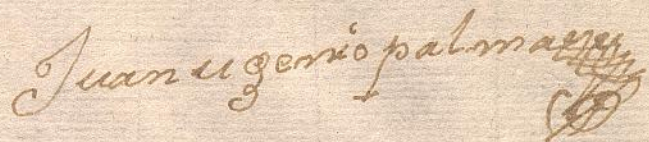 Juan ugenio palma